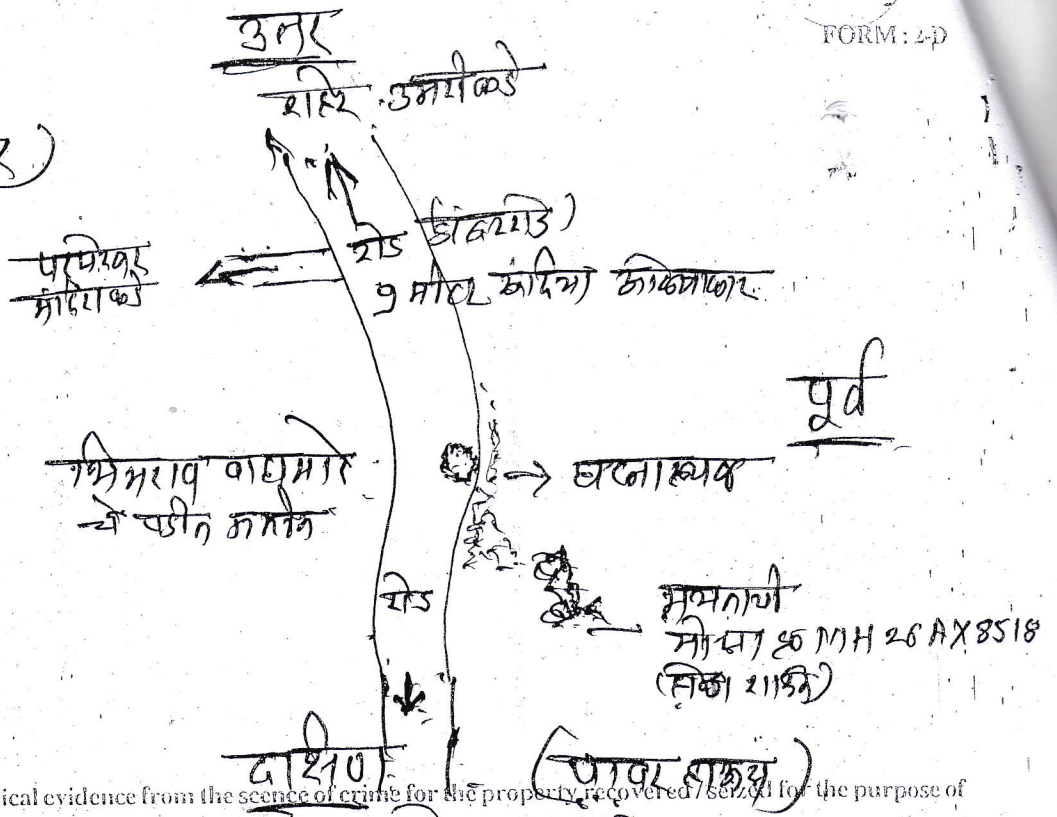 FORM : 2-D
उत्तर
शहर उमरीकडे
रोड (डांबररोड)
परमेश्वर
मंदिराकडे
9 मीटर रुंदीचा
पूर्व
भिमराव वाघमारे
चे पडीत जमीन
→ घटनास्थळ
रोड
मयताची
मो.सा क्र MH 26 AX 8518
दक्षिण
(पावर हाऊस)
ical evidence from the scence of crime for the property recovered / seized for the purpose of